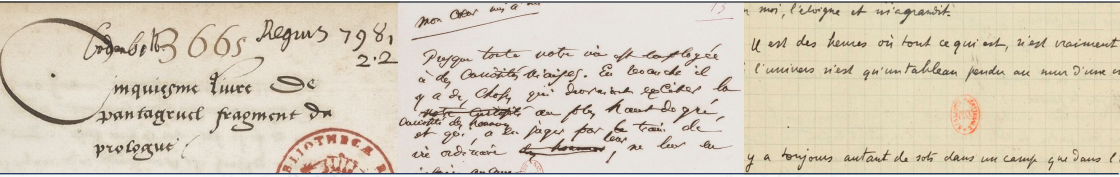 3665 Regius 7981
2.2
Cinquiesme livre de
pantagruel fragment du
prologue
BIBLIOTHECA R
mon cœur mis à nu
13
Presque toute notre vie est employée
à des curiosités niaises. En revanche il
y a des choses qui devraient exciter la
curiosité des hommes au plus haut degré,
et qui, à en juger par le train de
vie ordinaire, ne leur en
moi, l'éloigne et m'agrandit.
Il est des heures où tout ce qui est, n'est vraiment
l'univers n'est qu'un tableau pendu au mur d'une
y a toujours autant de sots dans un camp que dans l'